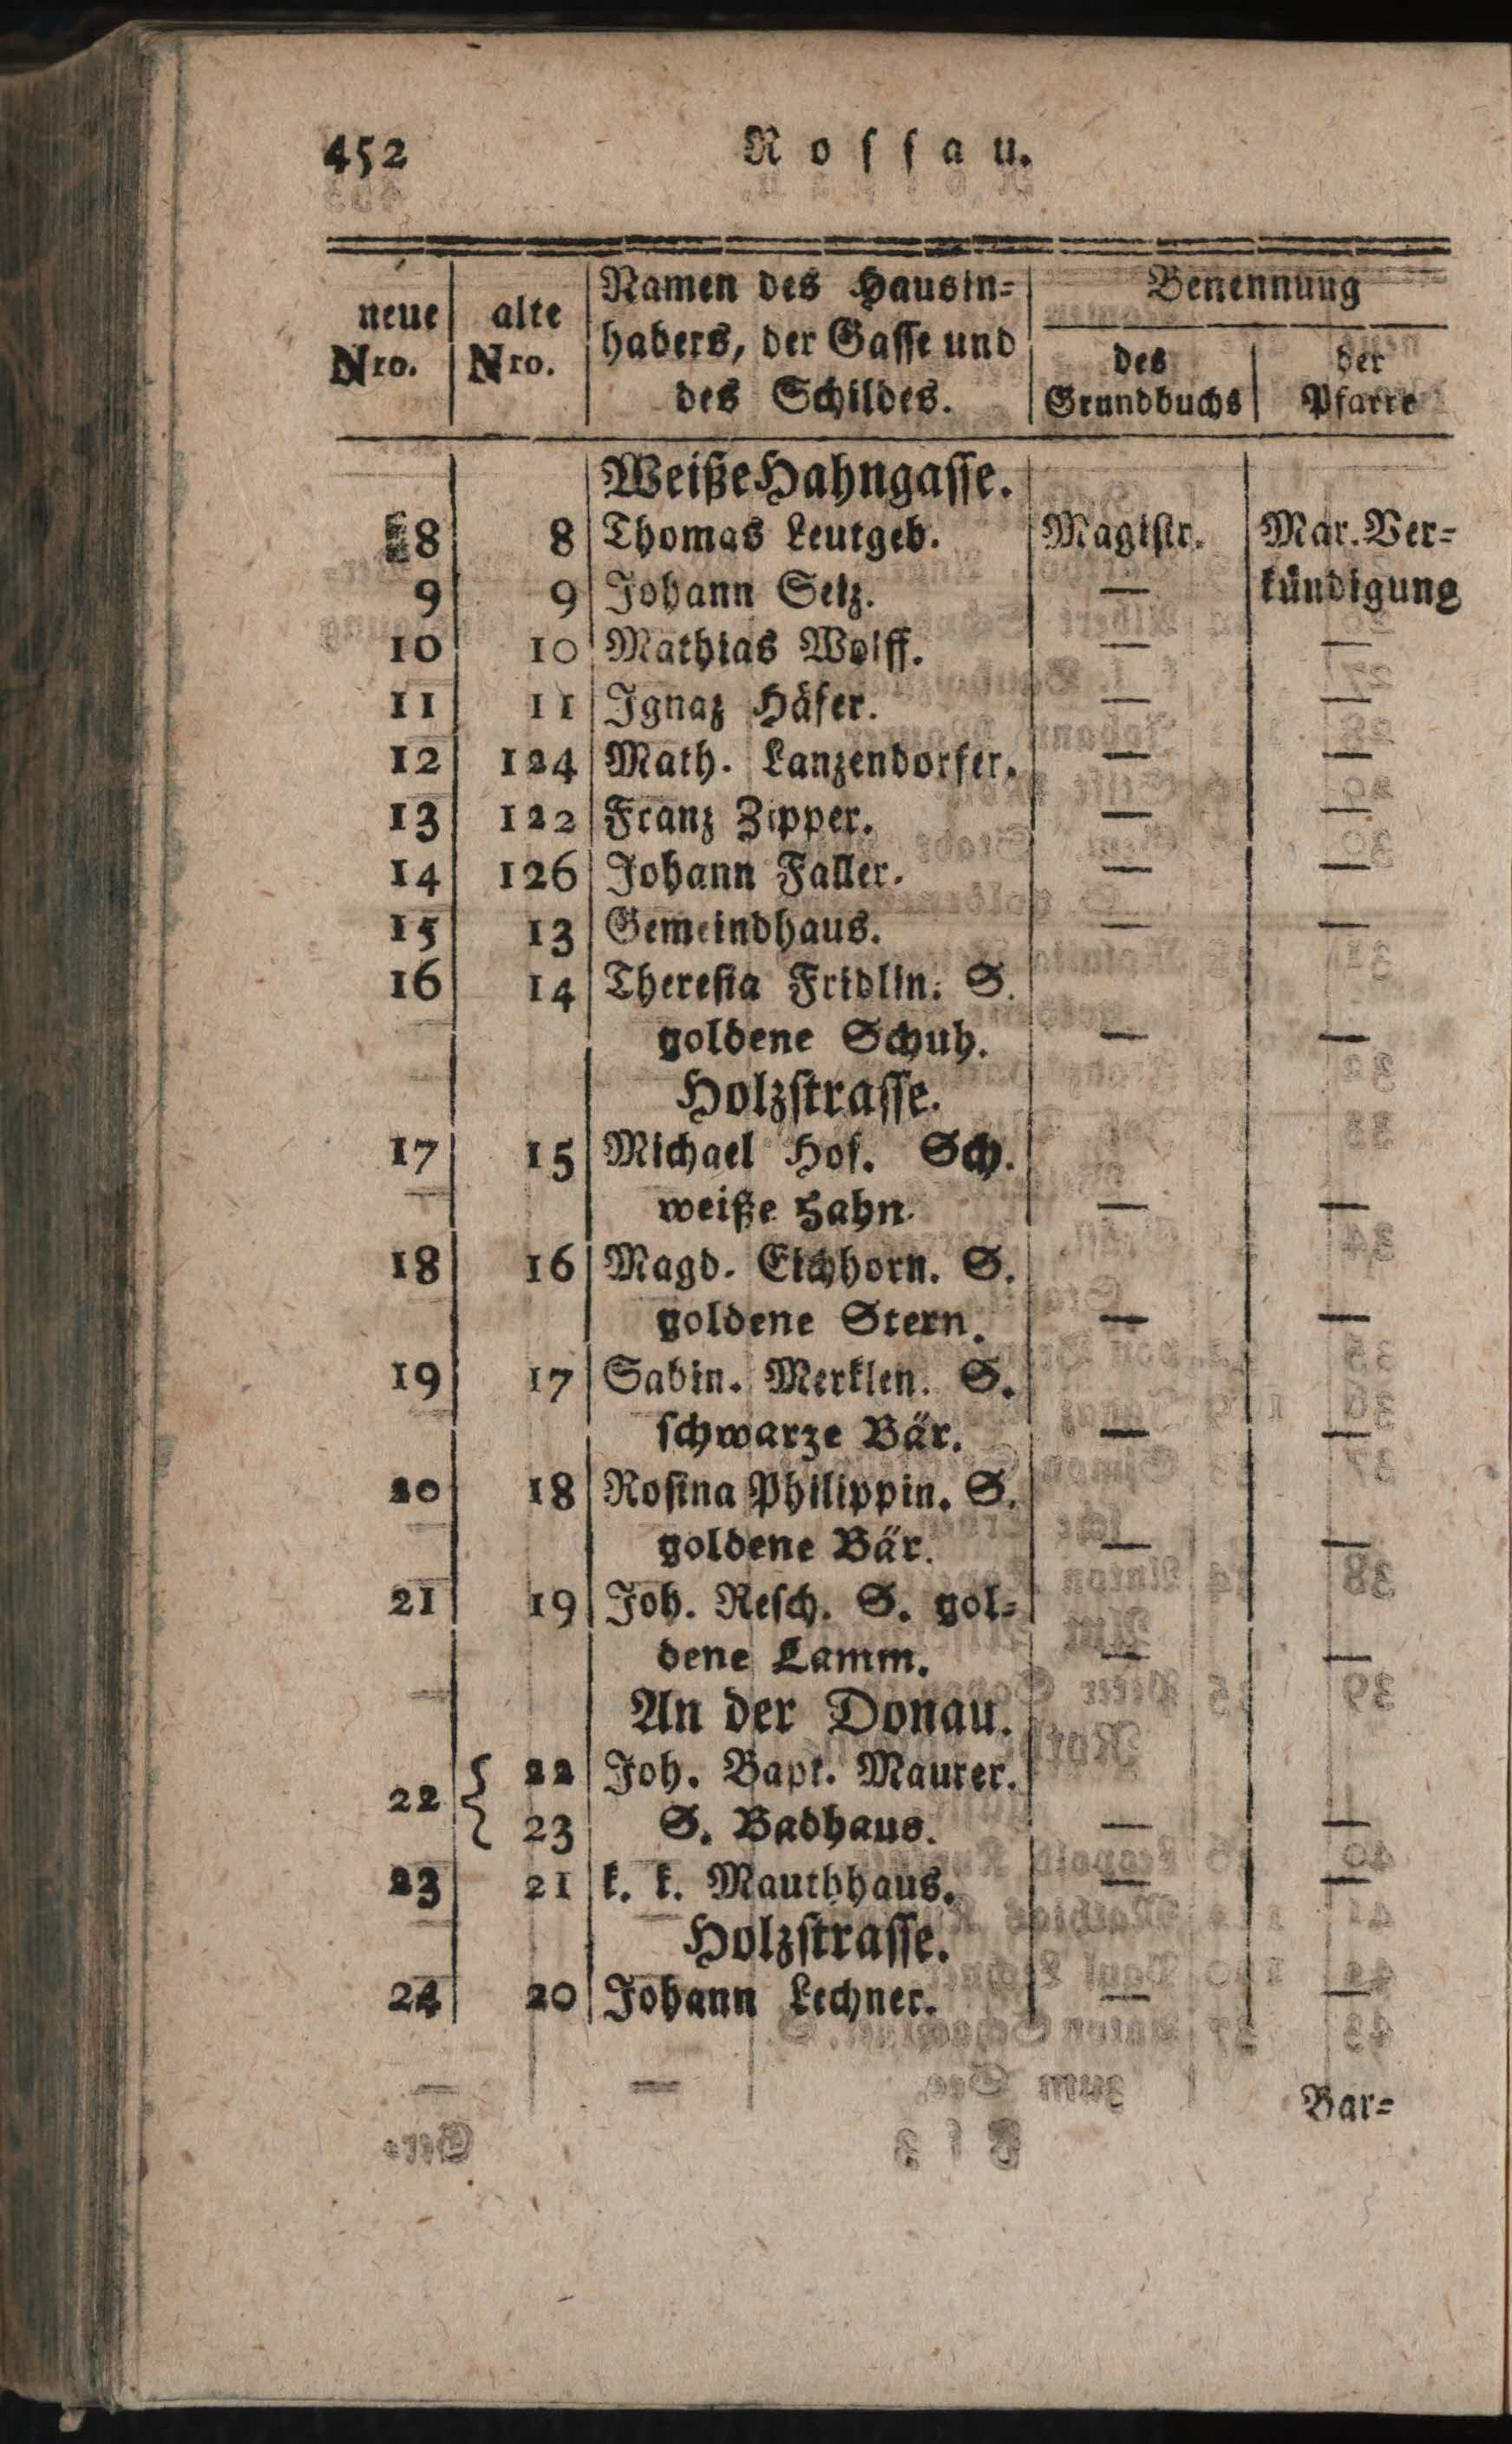 452 Rossau.
neue Nro. | alte Nro. | Namen des Hausin= | Benennung
habers, der Gasse und | des | der
des Schildes. | Grundbuchs | Pfarre
Weiße Hahngasse.
8 | 8 | Thomas Leutgeb. | Magistr. | Mar. Ver=
9 | 9 | Johann Seiz. | — | kündigung
10 | 10 | Mathias Wolff. | — | —
11 | 11 | Ignaz Häfer. | — | —
12 | 124 | Math. Lanzendorfer. | — | —
13 | 122 | Franz Zipper. | — | —
14 | 126 | Johann Faller. | — | —
15 | 13 | Gemeindhaus. | — | —
16 | 14 | Theresia Fridlin. S.
goldene Schuh. | — | —
Holzstrasse.
17 | 15 | Michael Hof. Sch.
weiße Hahn. | — | —
18 | 16 | Magd. Eichhorn. S.
goldene Stern. | — | —
19 | 17 | Sabin. Merklen. S.
schwarze Bär. | — | —
20 | 18 | Rosina Philippin. S.
goldene Bär. | — | —
21 | 19 | Joh. Resch. S. gol=
dene Lamm. | — | —
An der Donau.
22 { | 22 | Joh. Bapt. Maurer.
23 | S. Badhaus. | — | —
23 | 21 | k. k. Mauthhaus. | — | —
Holzstrasse.
24 | 20 | Johann Lechner. | — | —
Bar=